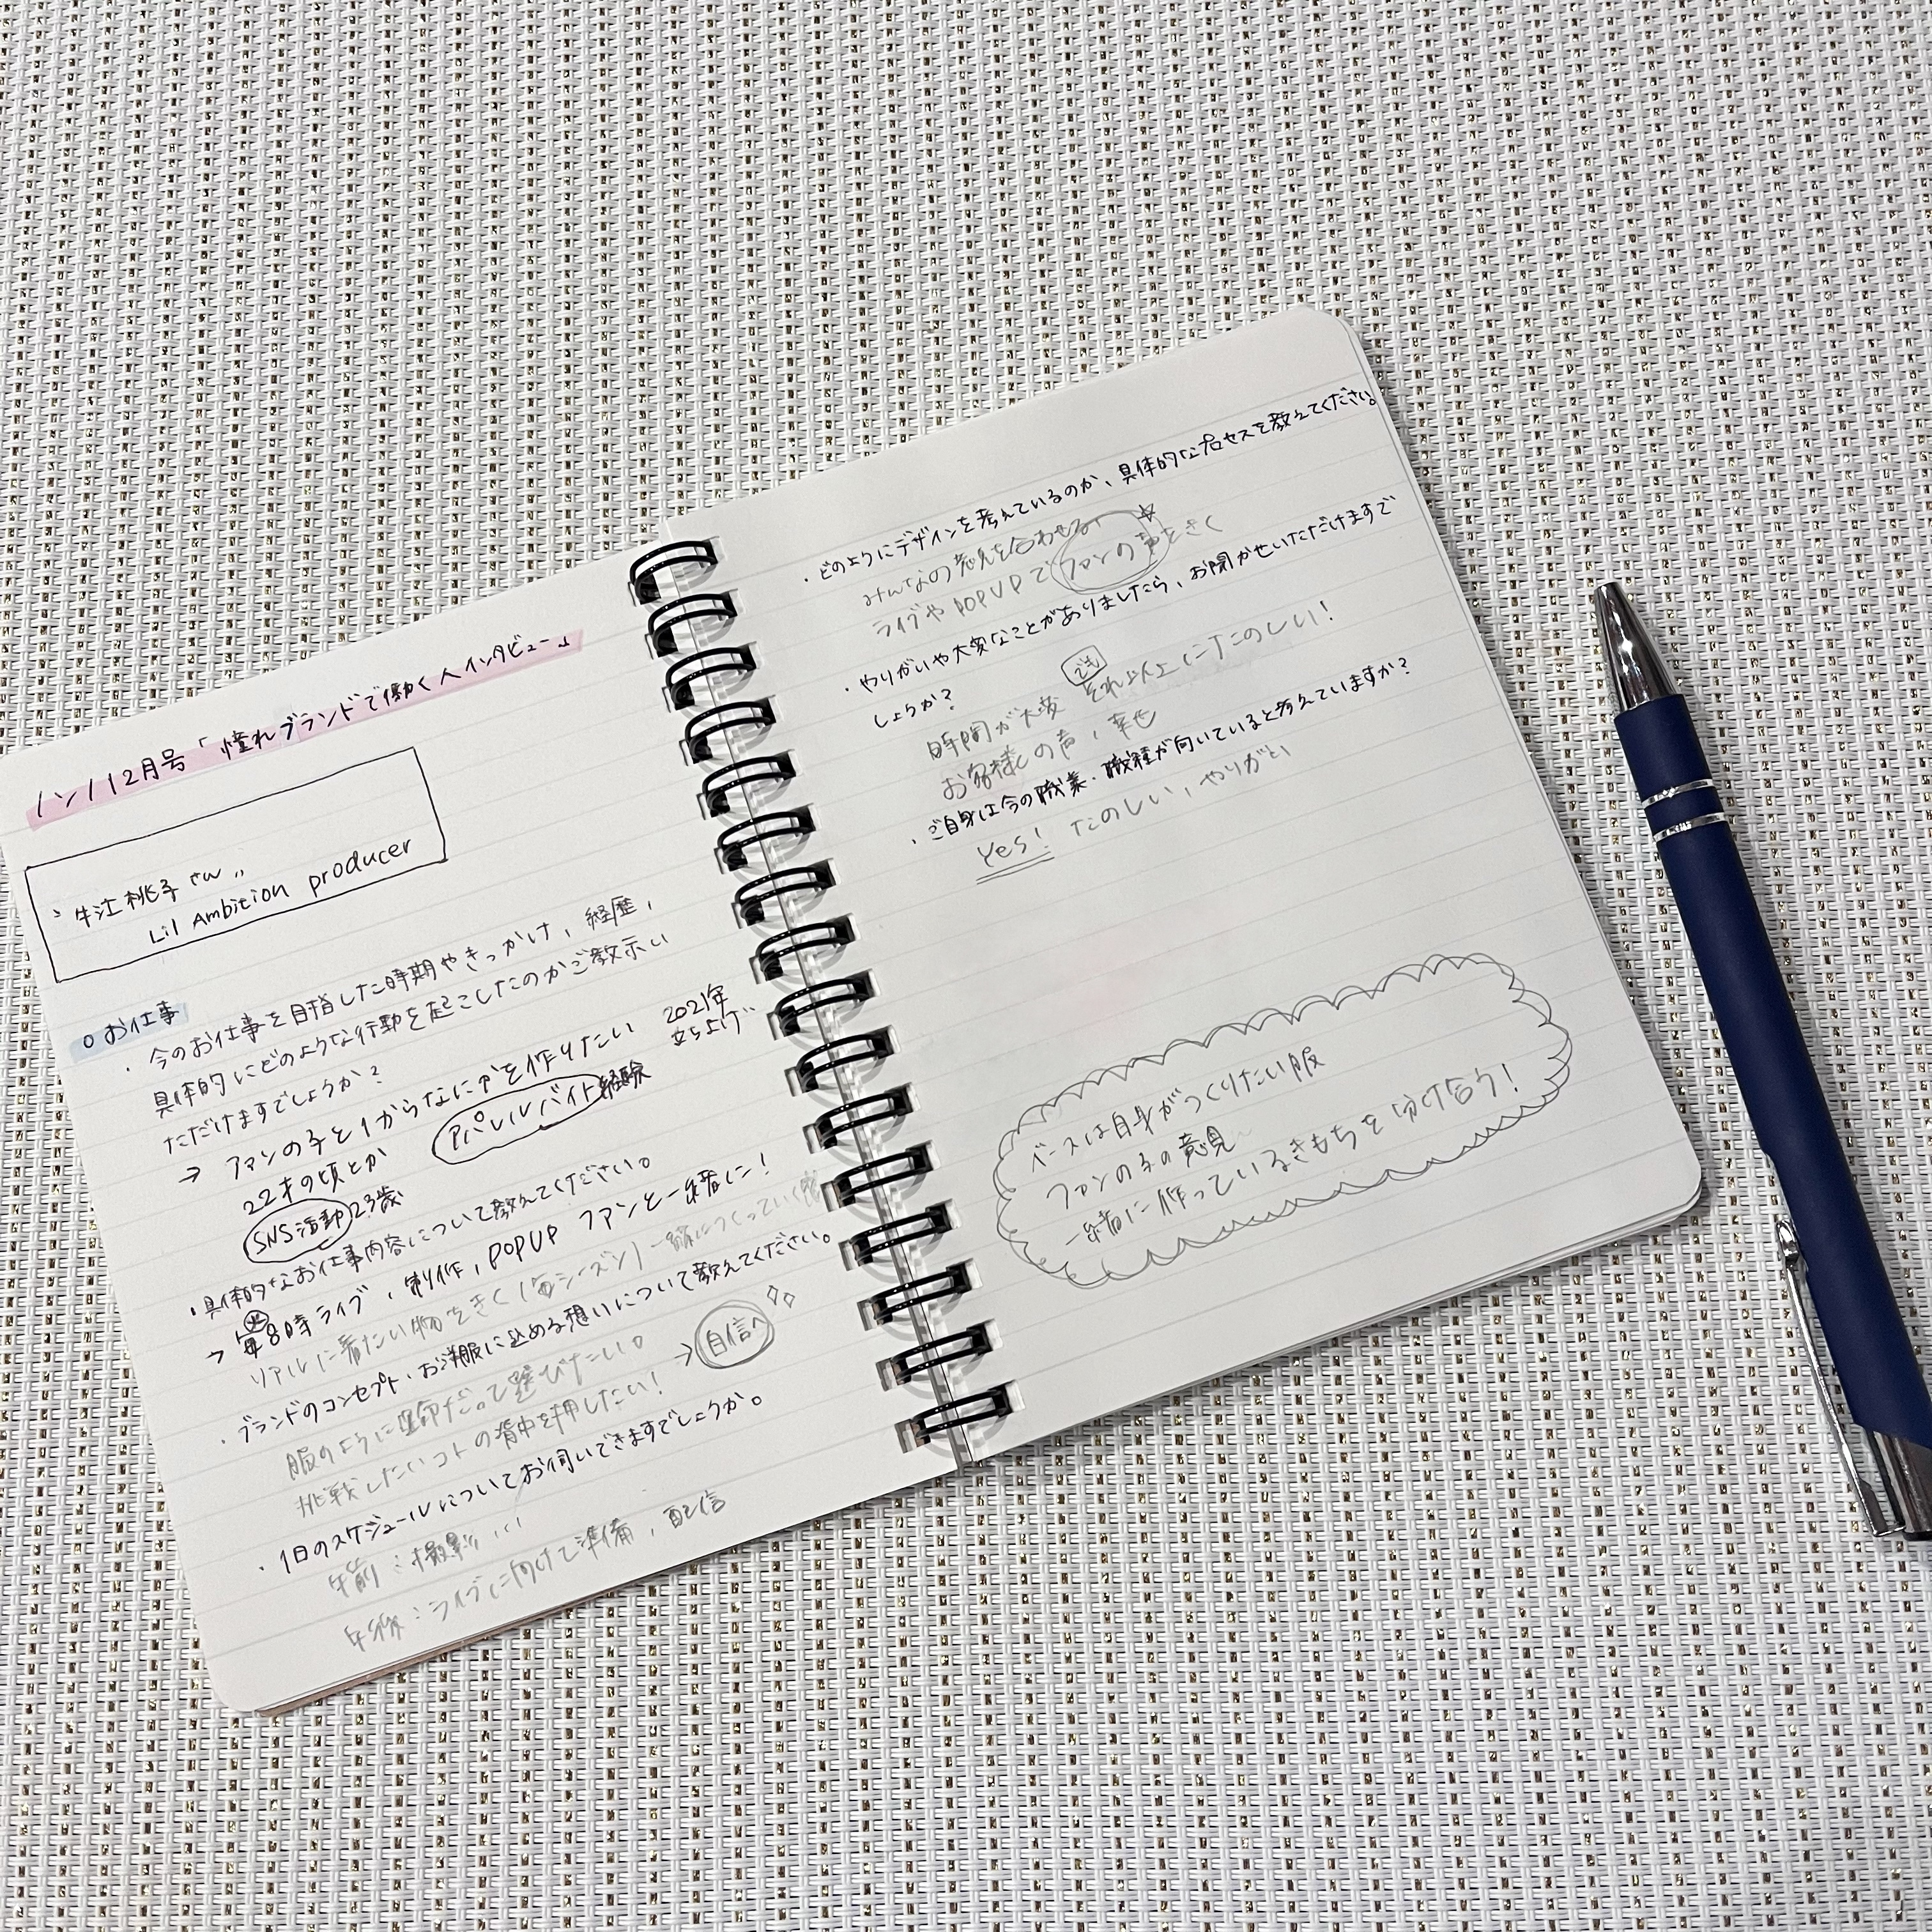 ノンノ12月号「憧れブランドで働く人インタビュー」
牛江桃子さん
Lil Ambition producer
○お仕事
・今のお仕事を目指した時期やきっかけ、経歴、
具体的にどのような行動を起こしたのかご教示い
ただけますでしょうか?
→ ファンの子と1からなにかを作りたい 2021年
立ち上げ
22才の頃とか アパレルバイト経験
SNS活動 23歳
・具体的なお仕事内容について教えてください。
→ 毎 火 8時ライブ、制作、POPUP ファンと一緒に!
リアルに着たい物をきく(毎シーズン)一緒につくっていく
・ブランドのコンセプト・お洋服に込める想いについて教えてください。
服のように 自分だって選びたい。
挑戦したいコトの背中を押したい! → 自信へ
・1日のスケジュールについてお伺いできますでしょうか。
午前:撮影
午後:ライブに向けて準備、配信
・どのようにデザインを考えているのか、具体的なプロセスを教えてください。
みんなの意見を合わせる
ライブやPOPUPでファンの声をきく
・やりがいや大変なことがありましたら、お聞かせいただけますで
しょうか?
時間が大変 でも それ以上にたのしい!
お客様の声、幸せ
・ご自身は今の職業・職種が向いていると考えていますか?
Yes! たのしい、やりがい
ベースは自身がつくりたい服
ファンの子の意見
一緒に作っているきもちを分け合う!